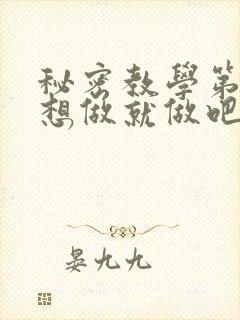 秘密教學第
想做就做吧
晏九九